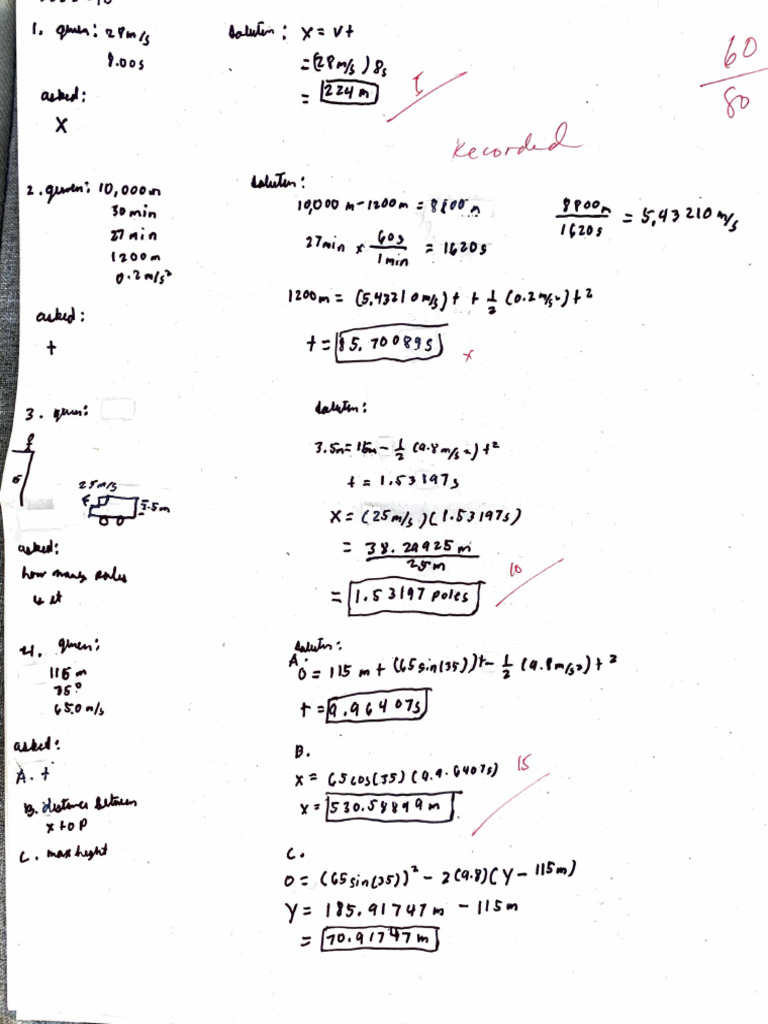 1. given: 28 m/s
8.00s
asked:
X
solution: X = vt
= (28 m/s) 8s
= 224 m
60
80
Recorded
2. given: 10,000 m
30 min
27 min
1200 m
0.2 m/s²
asked:
t
solution:
10,000 m - 1200 m = 8800 m
27 min x 60s / 1 min = 1620 s
8800 m / 1620 s = 5.43210 m/s
1200 m = (5.43210 m/s) t + 1/2 (0.2 m/s²) t²
t = 85.70089 s
x
3. given:
15
25 m/s
3.5 m
asked:
how many poles
is it
solution:
3.5m = 15m - 1/2 (9.8 m/s²) t²
t = 1.53197 s
X = (25 m/s)(1.53197s)
= 38.29925 m / 25 m
= 1.53197 poles
10
4. given:
115 m
35°
65.0 m/s
asked:
A. t
B. distance between
x to P
C. max height
solution:
A.
0 = 115 m + (65 sin(35)) t - 1/2 (9.8 m/s²) t²
t = 9.96407s
B.
x = 65 cos(35) (9.96407s)
x = 530.54899 m
15
C.
0 = (65 sin(35))² - 2(9.8)(Y - 115m)
Y = 185.91747 m - 115m
= 70.91747 m